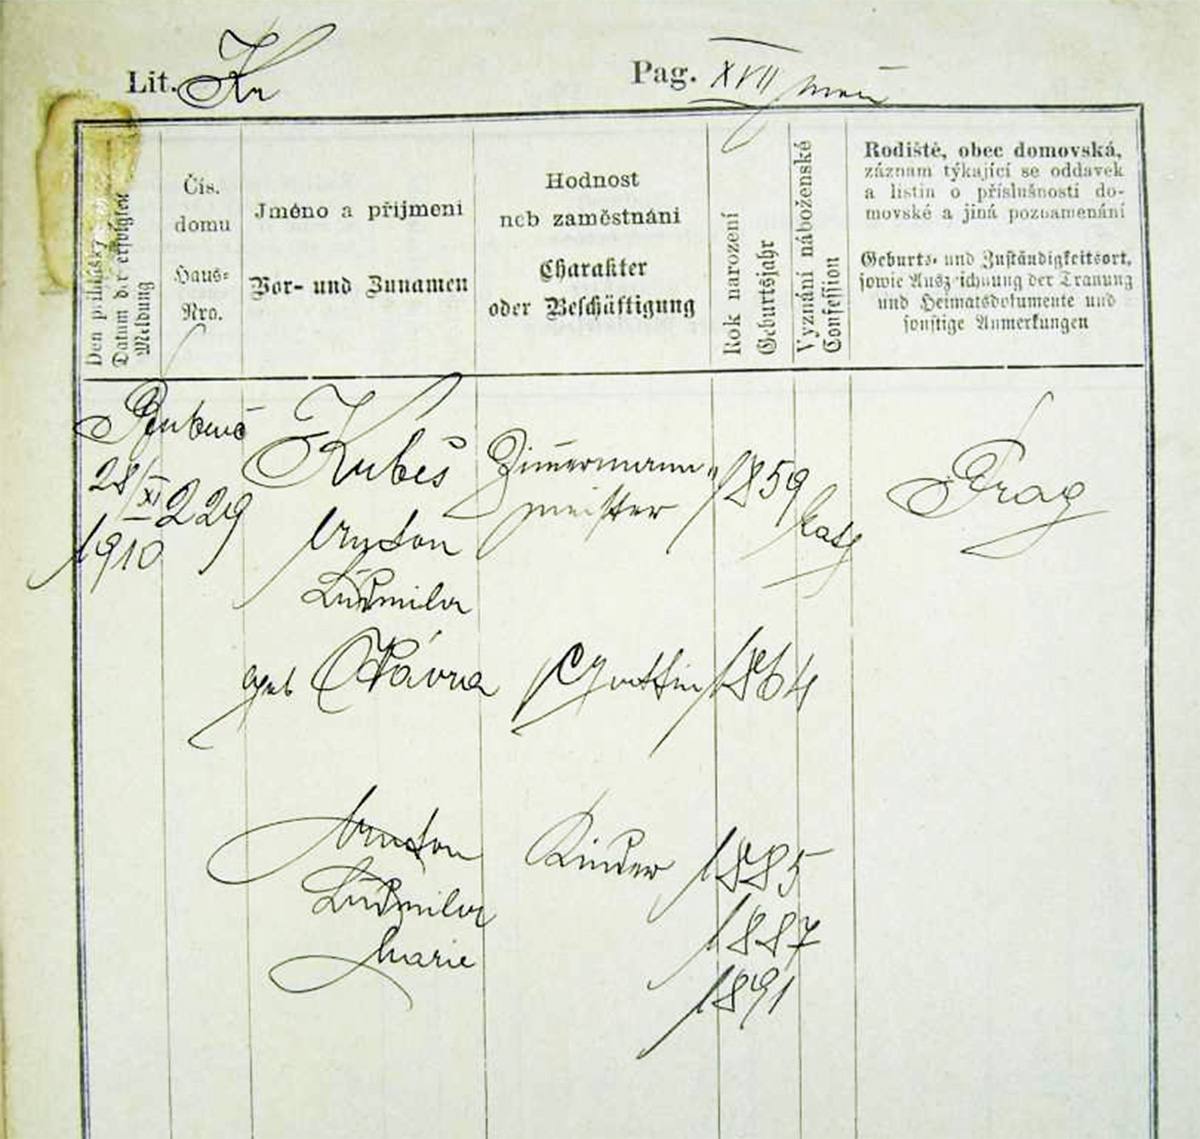 Lit. Ku
Pag. XVII
Den přihlášky
Datum der erfolgten
Meldung
Čís.
domu
Haus-
Nro.
Jméno a přijmení
Vor- und Zunamen
Hodnost
neb zaměstnáni
Charakter
oder Beschäftigung
Rok narození
Geburtsjahr
Vyznání náboženské
Confession
Rodiště, obec domovská,
záznam týkající se oddavek
a listin o příslušnosti do-
movské a jiná poznamenání
Geburts- und Zuständigkeitsort,
sowie Aufzeichnung der Trauung
und Heimatsdokumente und
sonstige Anmerkungen
Bubenč Kubeš Zimmermann- 1859 Prag
28/XI 229 meister kath
1910 Anton
Ludmila
geb Vávra Gattin 1864
Anton Kinder 1885
Ludmila 1887
Marie 1891